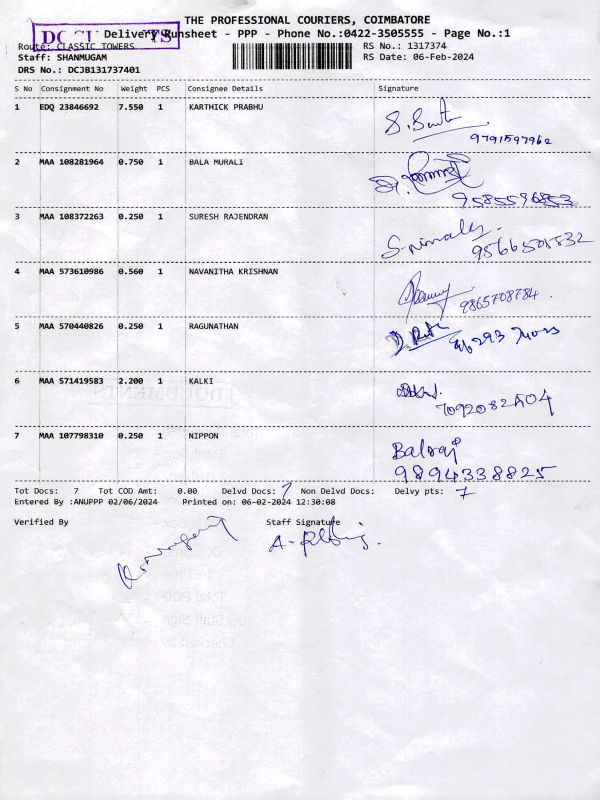 THE PROFESSIONAL COURIERS, COIMBATORE
Delivery Runsheet - PPP - Phone No.:0422-3505555 - Page No.:1
Route: CLASSIC TOWERS RS No.: 1317374
Staff: SHANMUGAM RS Date: 06-Feb-2024
DRS No.: DCJB131737401
S No Consignment No Weight PCS Consignee Details Signature
1 EDQ 23846692 7.550 1 KARTHICK PRABHU
9791597962
2 MAA 108281964 0.750 1 BALA MURALI
9585596853
3 MAA 108372263 0.250 1 SURESH RAJENDRAN
4 MAA 573610986 0.560 1 NAVANITHA KRISHNAN
9865708784
5 MAA 570440826 0.250 1 RAGUNATHAN
6 MAA 571419583 2.200 1 KALKI
7 MAA 107798310 0.250 1 NIPPON
Balraj
9894338825
Tot Docs: 7 Tot COD Amt: 0.00 Delvd Docs: 7 Non Delvd Docs: Delvy pts: 7
Entered By :ANUPPP 02/06/2024 Printed on: 06-02-2024 12:30:08
Verified By Staff Signature